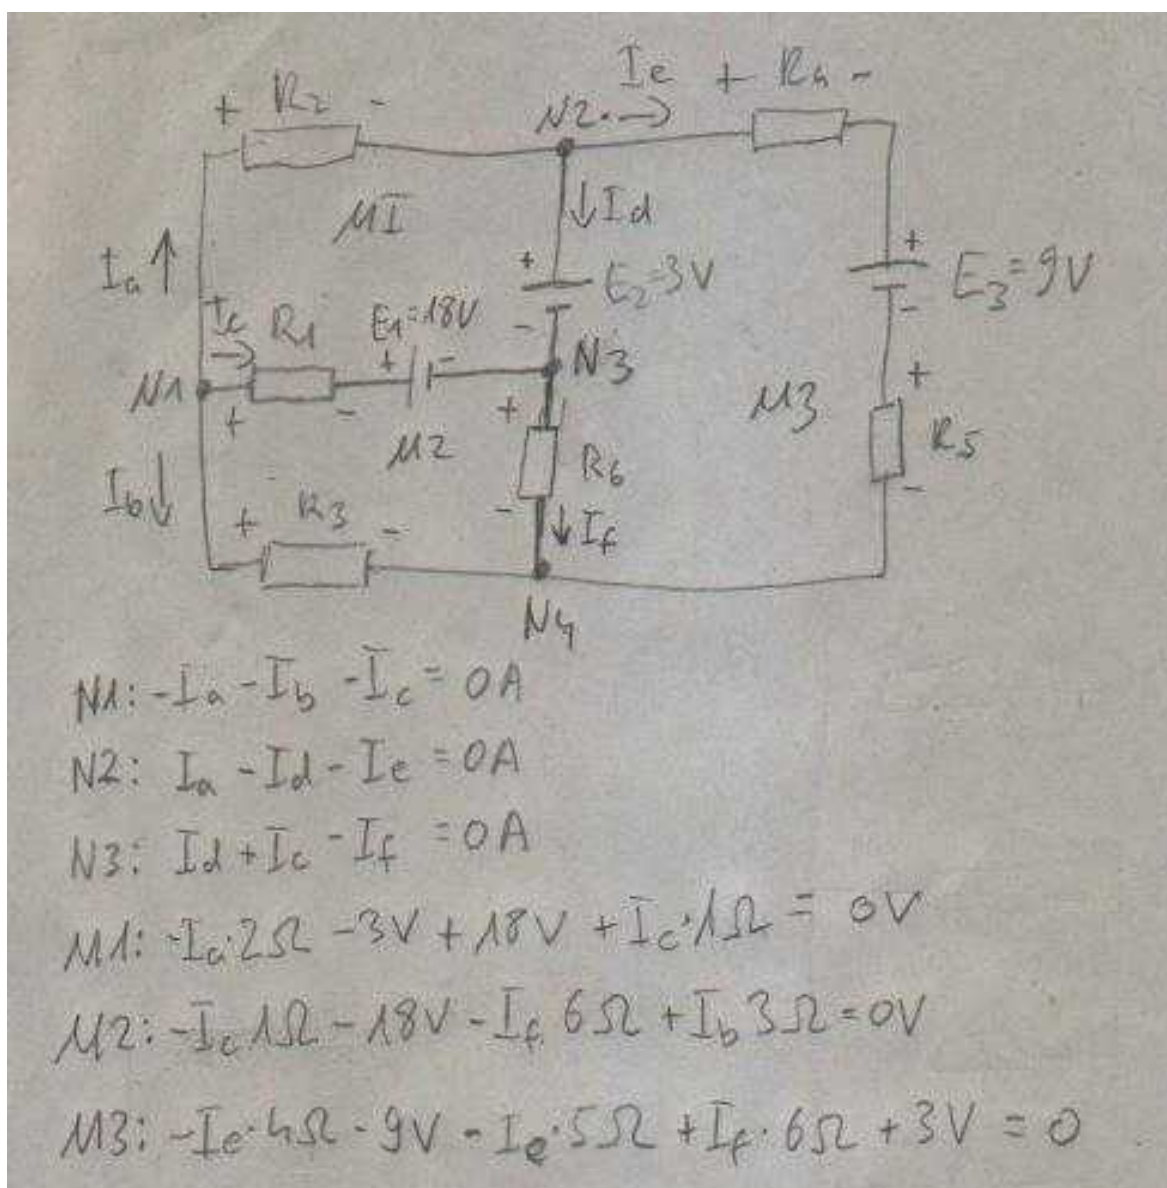 + R2 -
Ie + R4 -
N2
MI
Id
Ia
+ E2=3V -
+ E3=9V -
Ic
R1
E1=18V
+ -
N1
+ -
N3
M2
M3
+ R6 -
+ R5 -
Ib
+ R3 -
If
N4
N1: -Ia -Ib -Ic = 0A
N2: Ia -Id -Ie = 0A
N3: Id + Ic - If = 0A
M1: -Ia·2Ω -3V + 18V + Ic·1Ω = 0V
M2: -Ic 1Ω - 18V - If 6Ω + Ib 3Ω = 0V
M3: -Ie·4Ω - 9V - Ie·5Ω + If·6Ω + 3V = 0